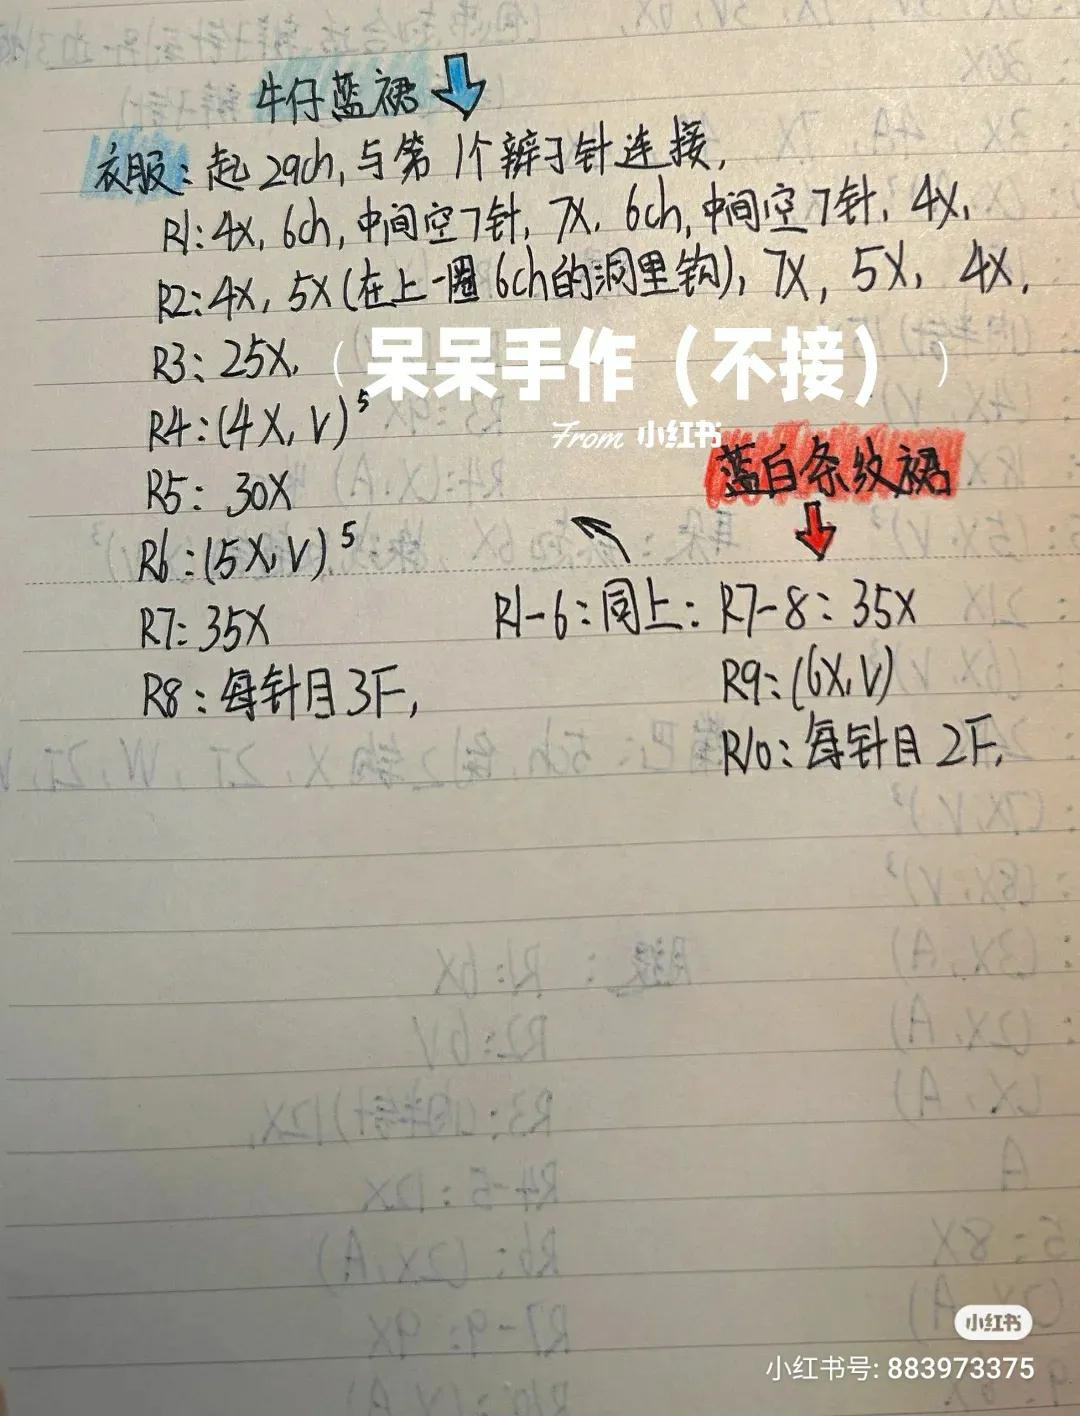 牛仔蓝裙
衣服：起29ch，与第1个辫子针连接，
R1：4X，6ch，中间空7针，7X，6ch，中间空7针，4X，
R2：4X，5X（在上一圈6ch的洞里钩），7X，5X，4X，
R3：25X，
（呆呆手作（不接））
From 小红书
R4：(4X，V)⁵
R5：30X
R6：(5X，V)⁵
R7：35X
R8：每针目3F，
蓝白条纹裙
R1-6：同上：R7-8：35X
R9：(6X，V)
R10：每针目2F，
腿：R1：6X
R2：6V
R3：(内半针)12X，
R4-5：12X
R6：(2X，A)
R7-9：9X
(7X，V)³
(8X，V)³
(3X，A)
(2X，A)
(X，A)
A
小红书
小红书号: 883973375